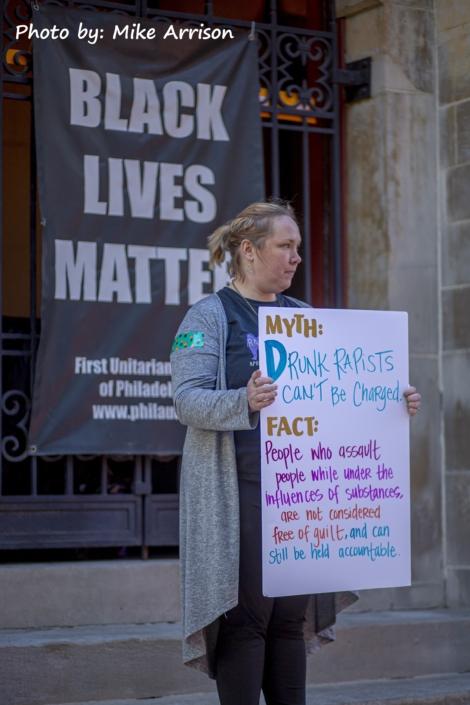 Photo by: Mike Arrison
BLACK
LIVES
MATTER
First Unitarian
of Philadel
www.philau
MYTH:
DRUNK RAPISTS
CAN'T Be CHARGED.
FACT:
People who assault
people while under the
influences of substances,
are not considered
free of guilt, and can
still be held accountable.